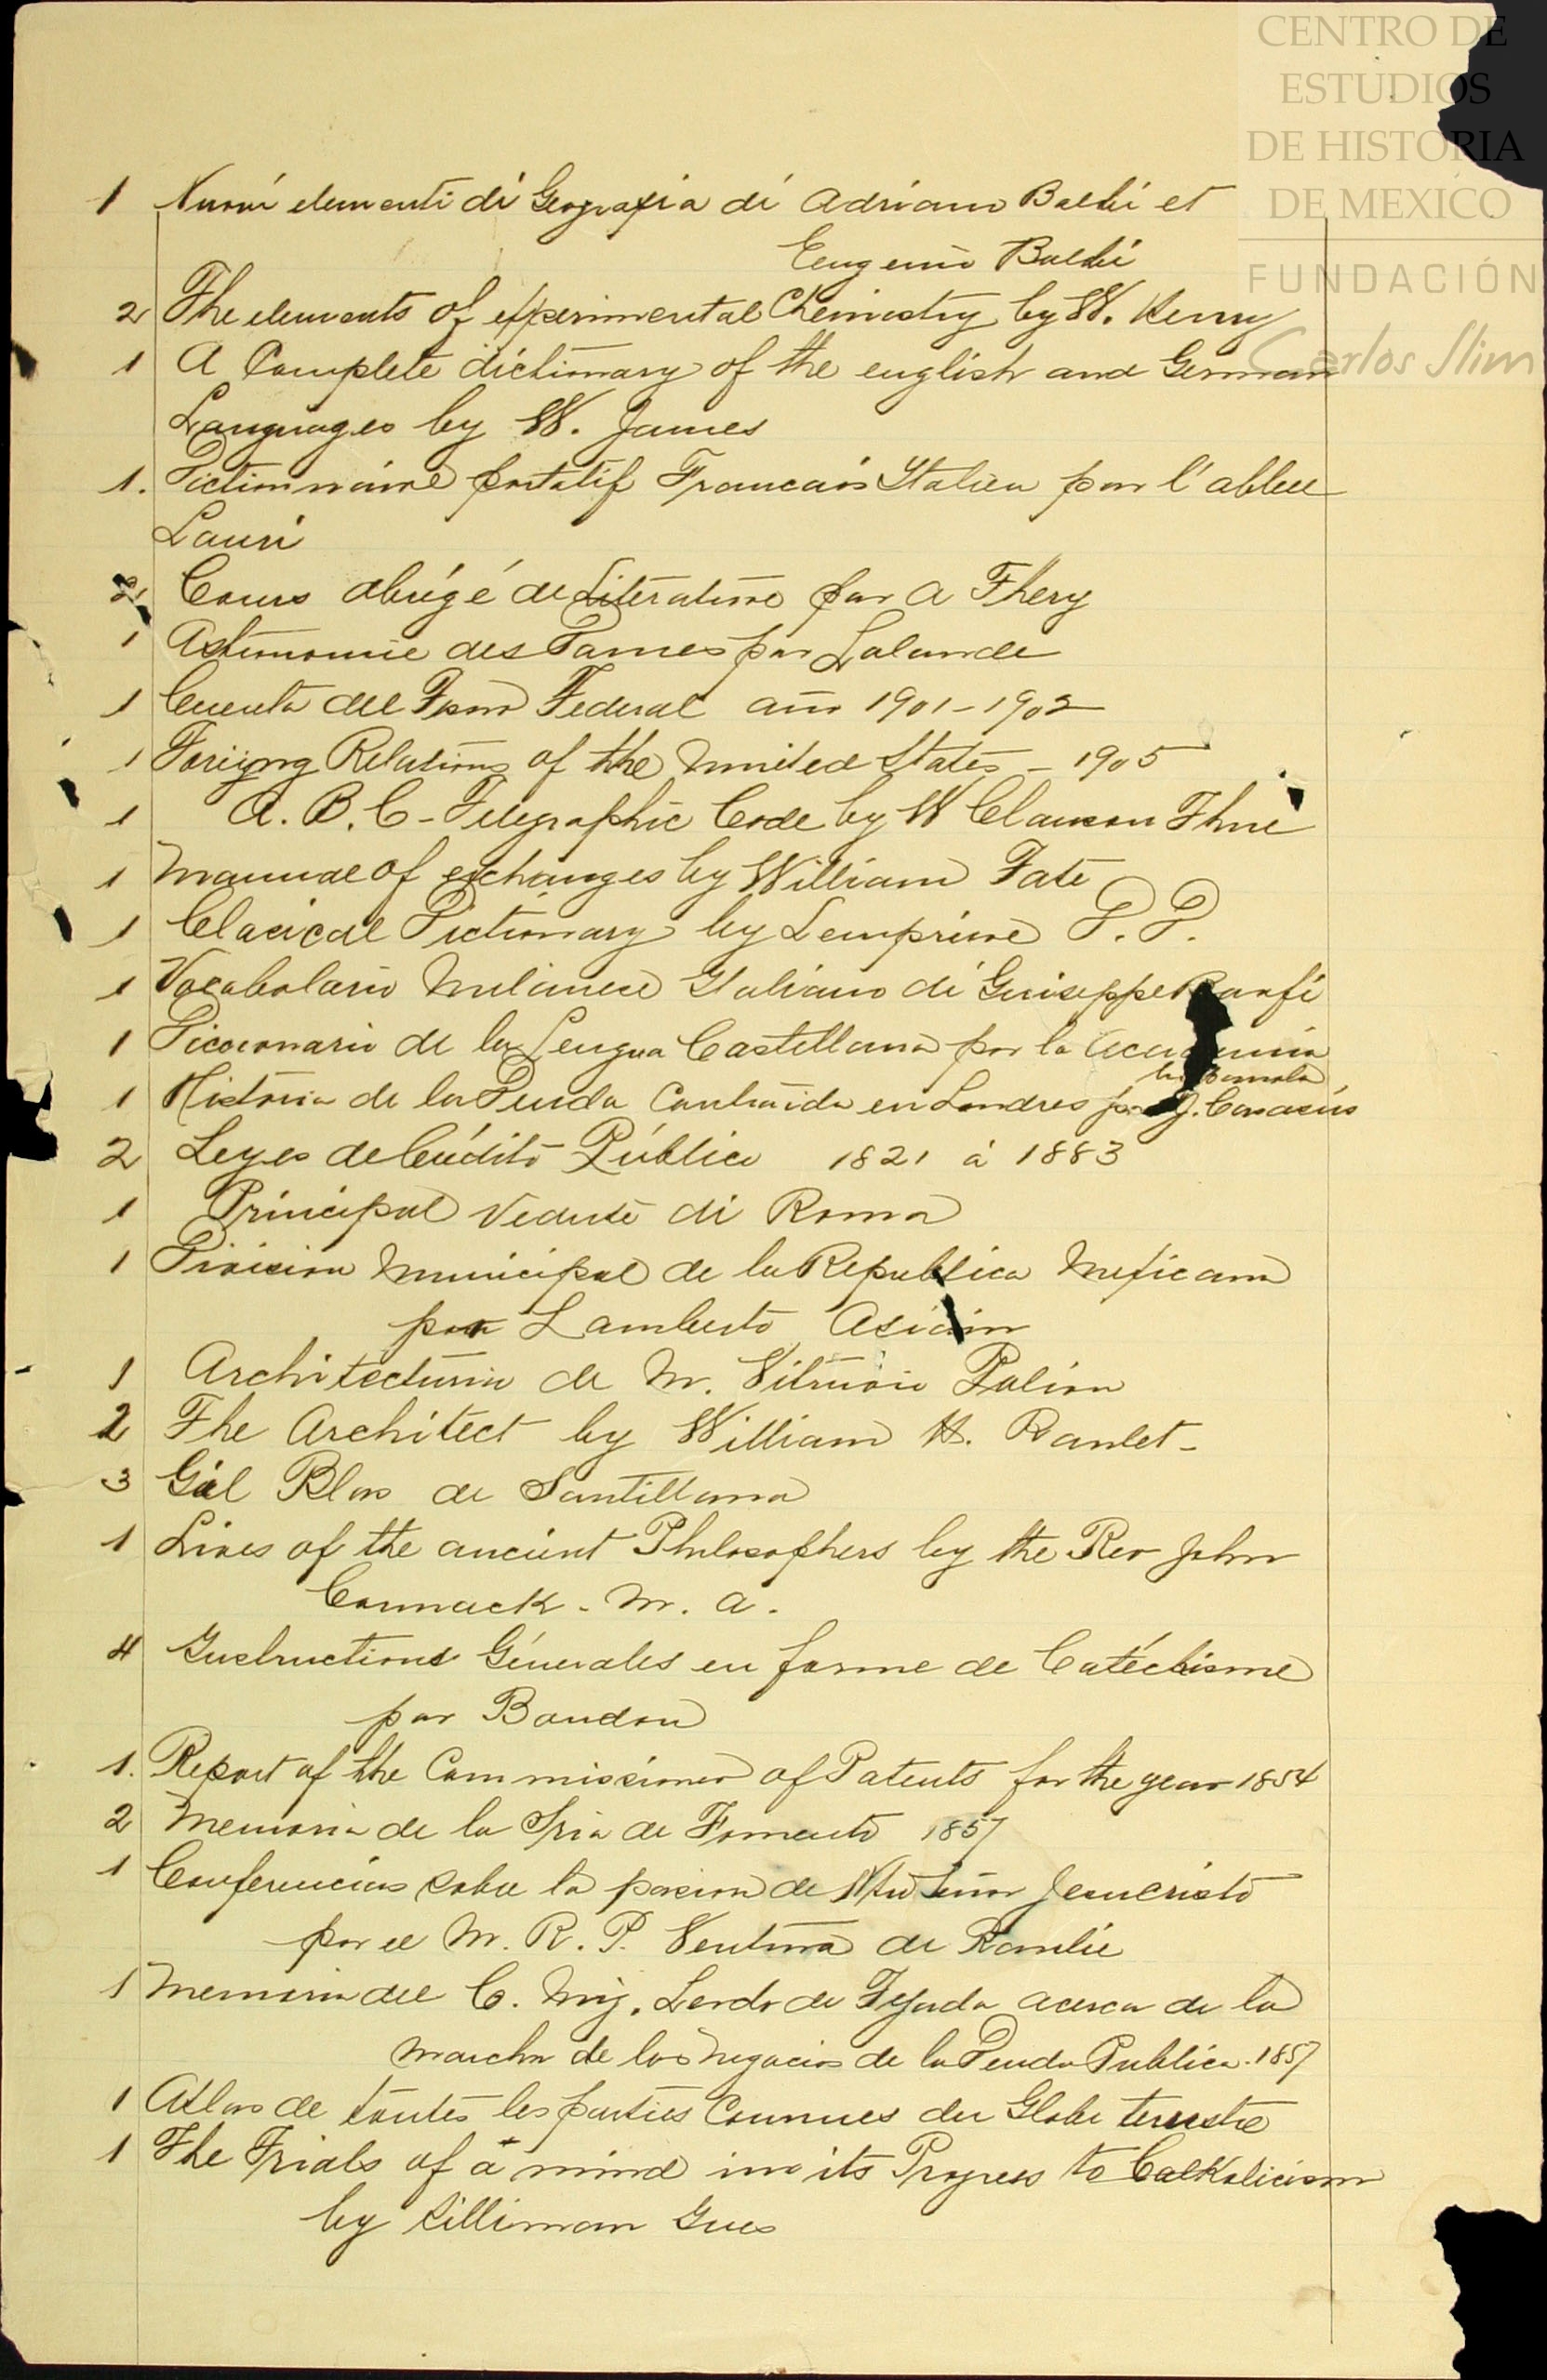 CENTRO DE
ESTUDIOS
DE HISTORIA
DE MEXICO
FUNDACIÓN
Carlos Slim
1 Nuovi elementi di Geografia di Adriano Balbi et
Eugenio Balbi
2 The elements of experimental Chemistry by W. Henry
1 A Complete dictionary of the english and German
Languages by W. James
1. Dictionnaire portatif Francais Italien par l'abbee
Lauri
2 Cours abrégé de Literature par A Thery
1 Astronomie des Dames par Lalande
1 Cuenta del Tesoro Federal año 1901-1902
1 Foriegng Relations of the United States - 1905
1 A. B. C - Telegraphic Code by W Clauson Thue
1 Manual of exchanges by William Tate
1 Clacical Dictionary by Lempriere D. D.
1 Vocabolario Milanece Italiano di Guiseppe Banfi
1 Diccionario de la Lengua Castellana por la Academia
Española
1 Historia de la Deuda Contraida en Londres por J. Casasús
2 Leyes de Crédito Público 1821 á 1883
1 Principal Vedute di Roma
1 Division Municipal de la Republica Mexicana
por Lamberto Asiain
1 Architectura de M. Vitruvio Polion
2 The Architect by William H. Ranlet-
3 Gil Blas de Santillana
1 Lives of the ancient Philosophers by the Rev John
Cormack - M. A.
4 Instructions Génerales en forme de Catéchisme
par Baudou
1. Report of the Commissioner of Patents for the year 1854
2 Memoria de la Sria de Fomento 1857
1 Conferencias sobre la pasion de Ntro Señor Jesucristo
por el M. R. P. Ventura de Raulie
1 Memoria del C. Mig. Lerdo de Tejada acerca de la
marcha de los negocios de la Deuda Publica. 1857
1 Atlas de toutes les parties Connues du Globe terrestre
1 The Trials of a mind in its Progress to Catholicism
by Silliman Ives